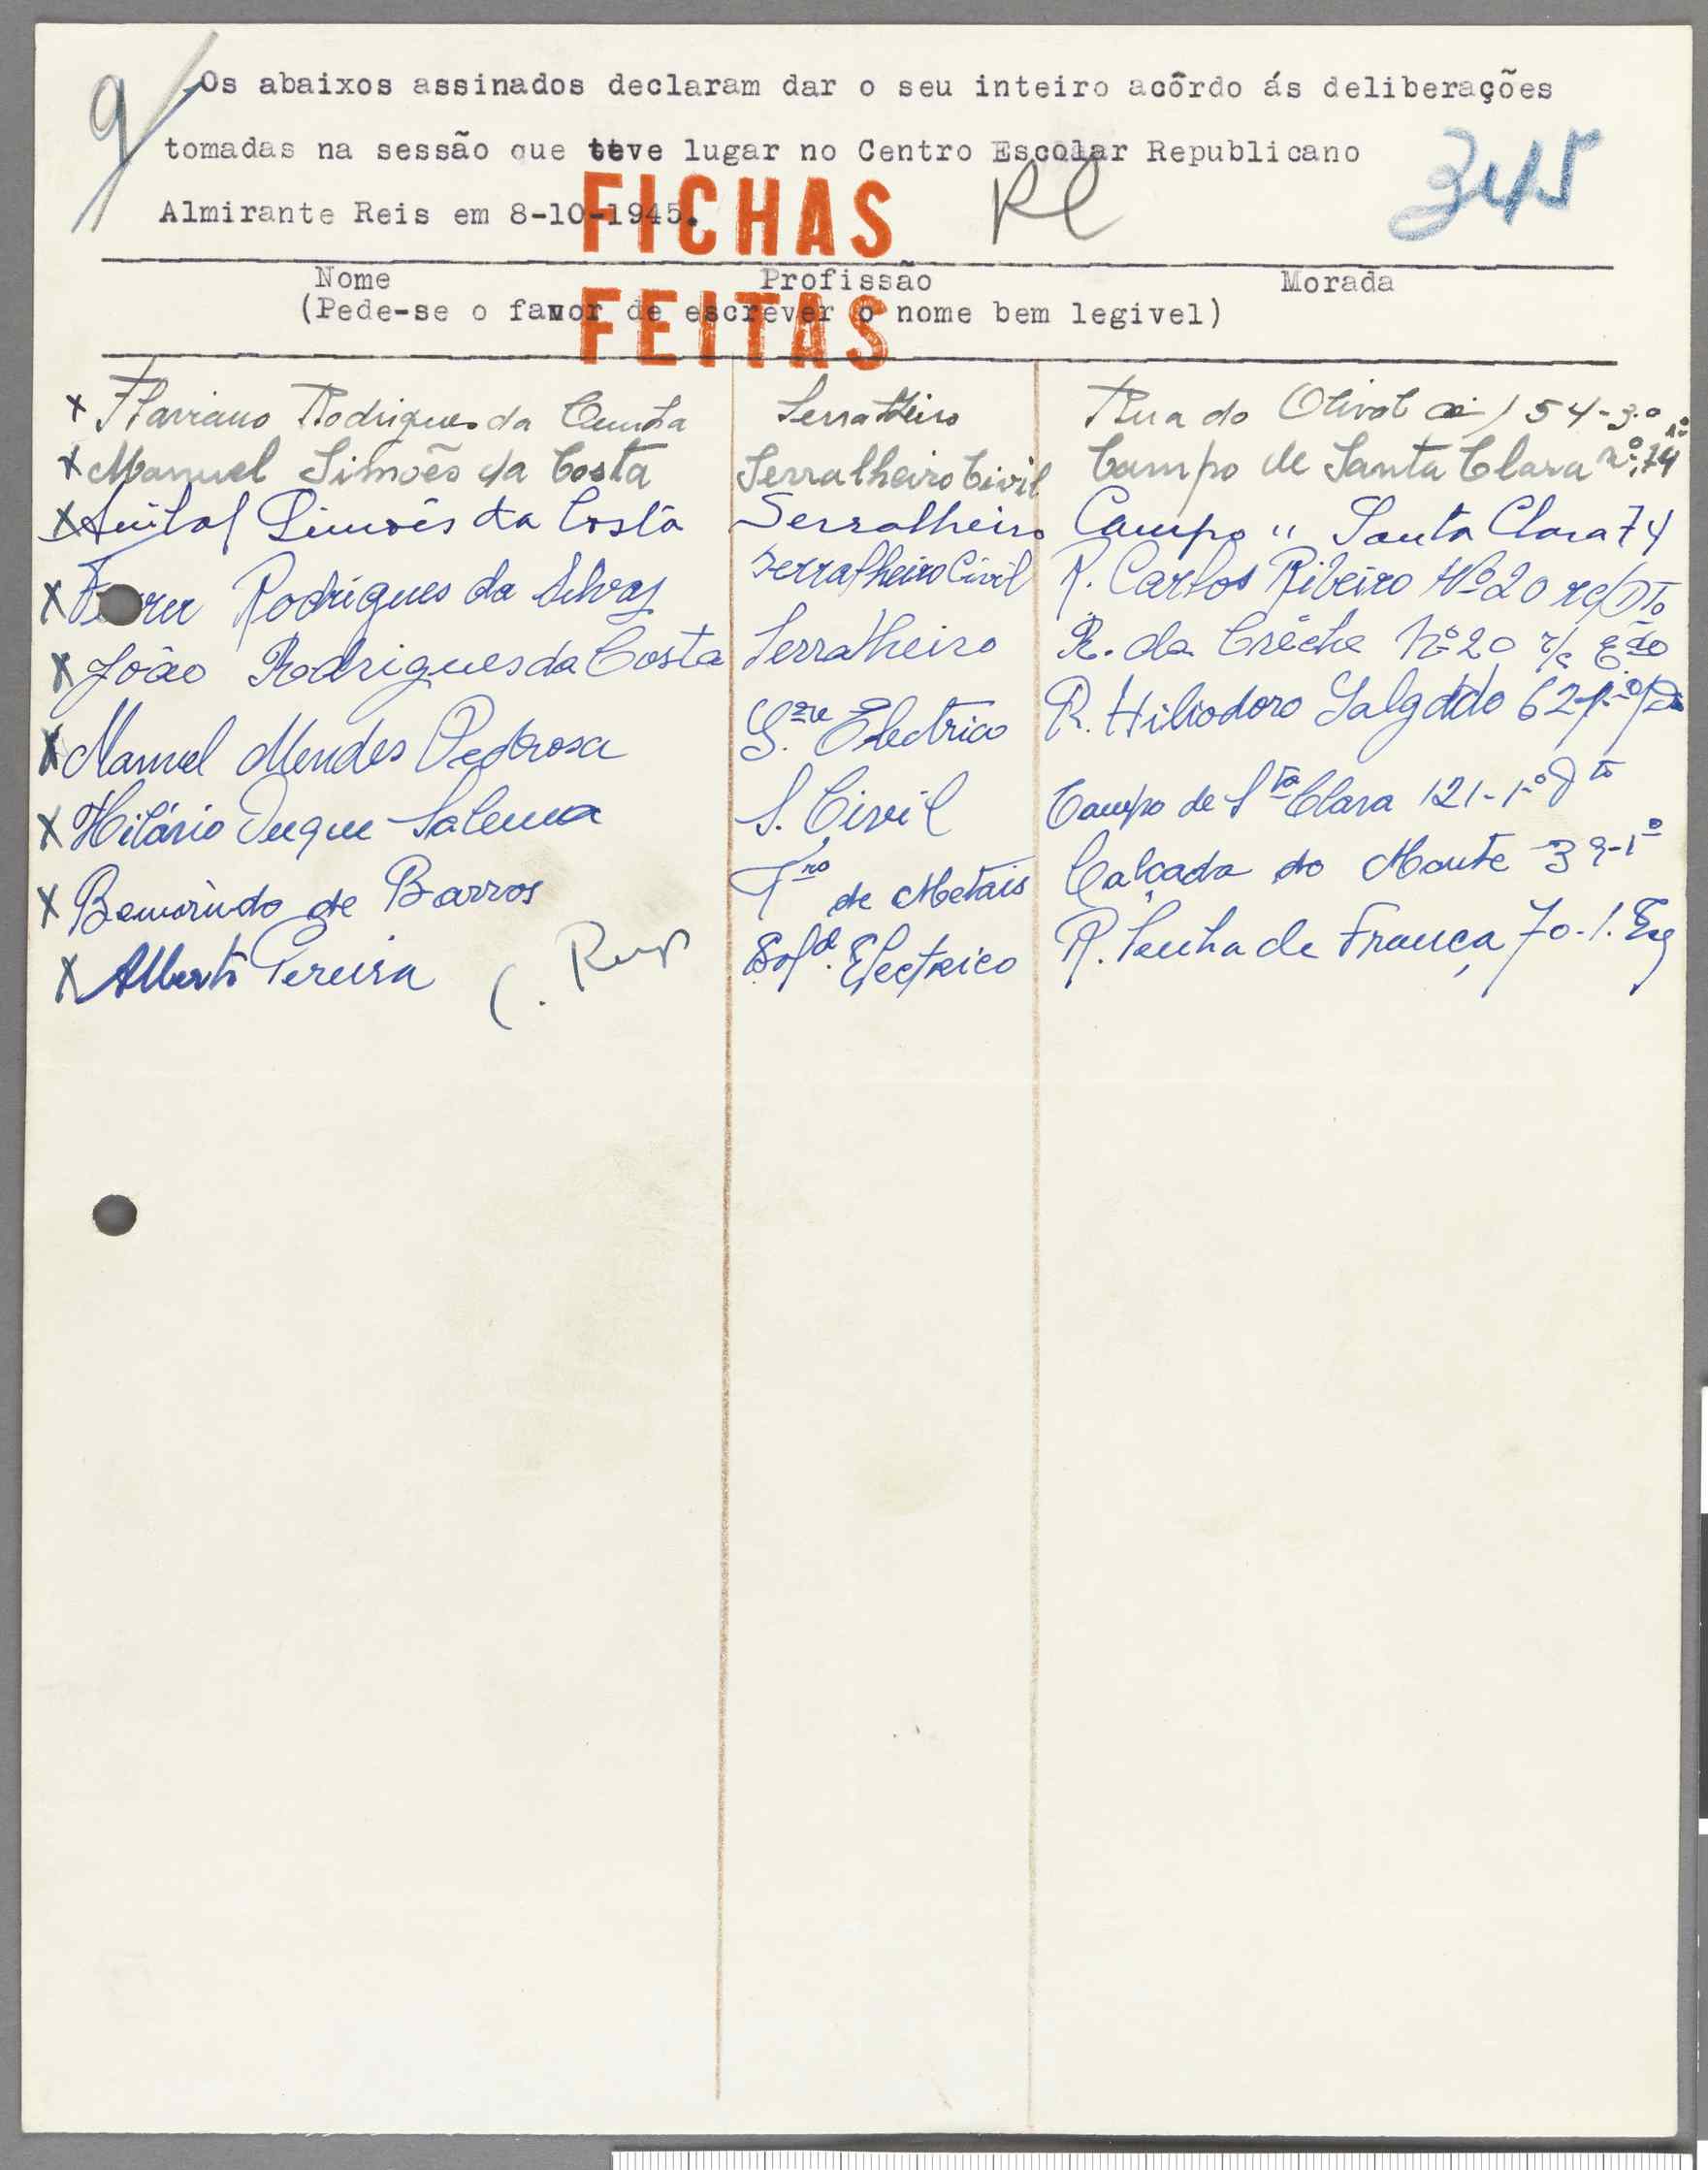 9
Os abaixos assinados declaram dar o seu inteiro acôrdo ás deliberações
tomadas na sessão que teve lugar no Centro Escolar Republicano
345
Almirante Reis em 8-10-1945.
FICHAS
Nome Profissão Morada
(Pede-se o favor de escrever o nome bem legivel)
FEITAS
x Flaviano Rodrigues da Cunha Serralheiro Rua do Olival 154-3.º
x Manuel Simões da Costa Serralheiro Civil Campo de Santa Clara nº 74
x Anibal Simões da Costa Serralheiro Campo " Santa Clara 74
x Rodrigues da Silva Serralheiro Civil R. Carlos Ribeiro Nº 20 rc/Dto
x João Rodrigues da Costa Serralheiro R. da Crêche Nº 20 r/c
x Manuel Mendes Pedrosa Electrico R. Hiliodoro Salgado 62
x Hilário Duque Salema S. Civil Campo de Sta Clara 121-1º Dto
x de Barros Tro de Metais Calçada do Monte 39-1º
x Alberto Pereira Solda Electrico R. Penha de França, 70-1. Esq